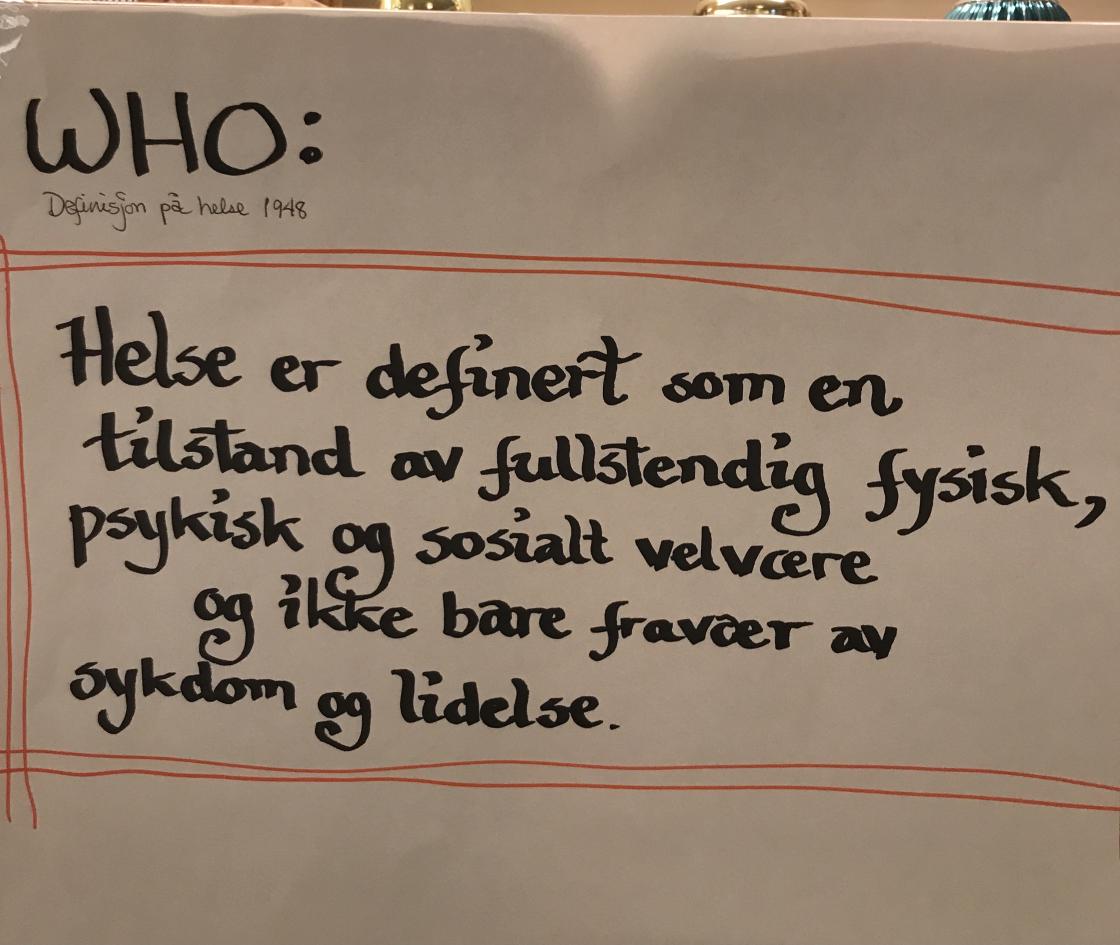 WHO:
Definisjon på helse 1948
Helse er definert som en
tilstand av fullstendig fysisk,
psykisk og sosialt velvære
og ikke bare fravær av
sykdom og lidelse.